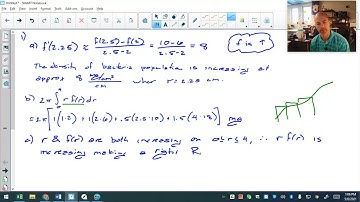 Untitled* - SMART Notebook
1)
a) f'(2.25) ≈ f(2.5)-f(2) / 2.5-2 = 10-6 / 2.5-2 = 8
f is ↑
The density of bacteria population is increasing at
approx 8 mg/cm² / cm when r=2.25 cm.
b) 2π ∫ r f(r) dr
= 2π [1(1·2) + 1(2·6) + .5(2.5·10) + 1.5(4·18)] mg
c) r & f(r) are both increasing on 0≤r≤4, ∴ r f(r) is
increasing making a right R